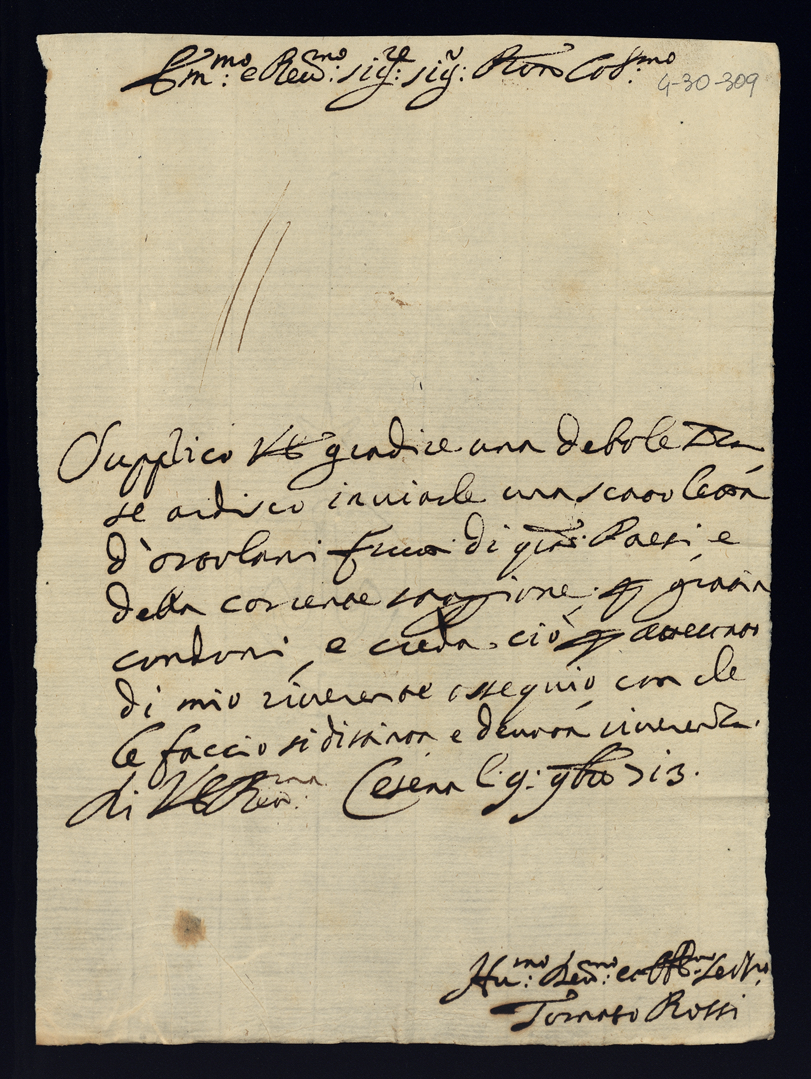 Em:mo e Reu:mo sig:re sig:r Pron Col:mo
4-30-309
Supplico VE gradire una debole
se ardisco inviarle una scatoletta
d'ortolani di q:ti Paesi e
della corrente staggione; grazia
condoni, e creda ciò
di mio riverente ossequio con che
le faccio si distinta e devota riverenza.
di VE Reu:ma Cesena l: 9: 9bre 713.
Hu:mo Deu:mo et Obb:mo Ser:re
Tomaso Rossi